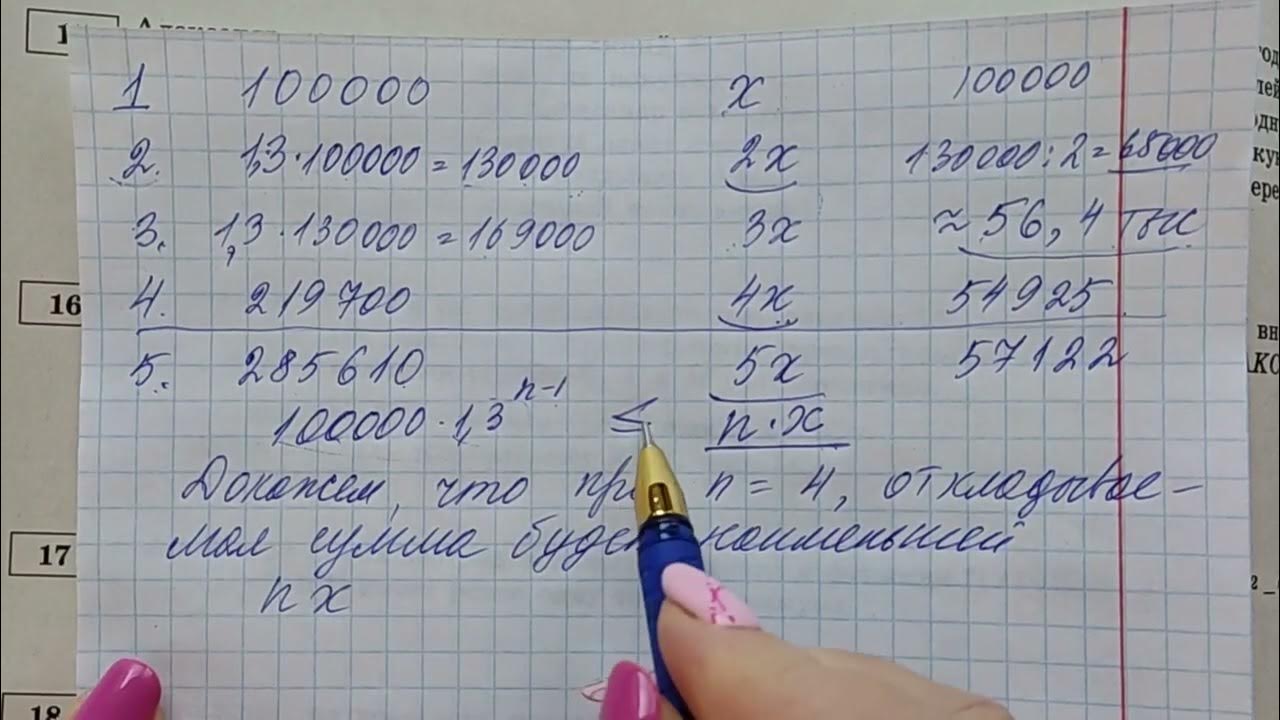 1 100000 x 100000
2. 1,3·100000 = 130000 2x 130000:2 = 65000
3. 1,3·130000 = 169000 3x ≈ 56,4 тыс
4. 219700 4x 54925
5. 285610 5x 57122
100000·1,3ⁿ⁻¹ ≤ n·x
Докажем, что при n = 4, откладывае-
мая сумма будет наименьшей
nx
16
17
18